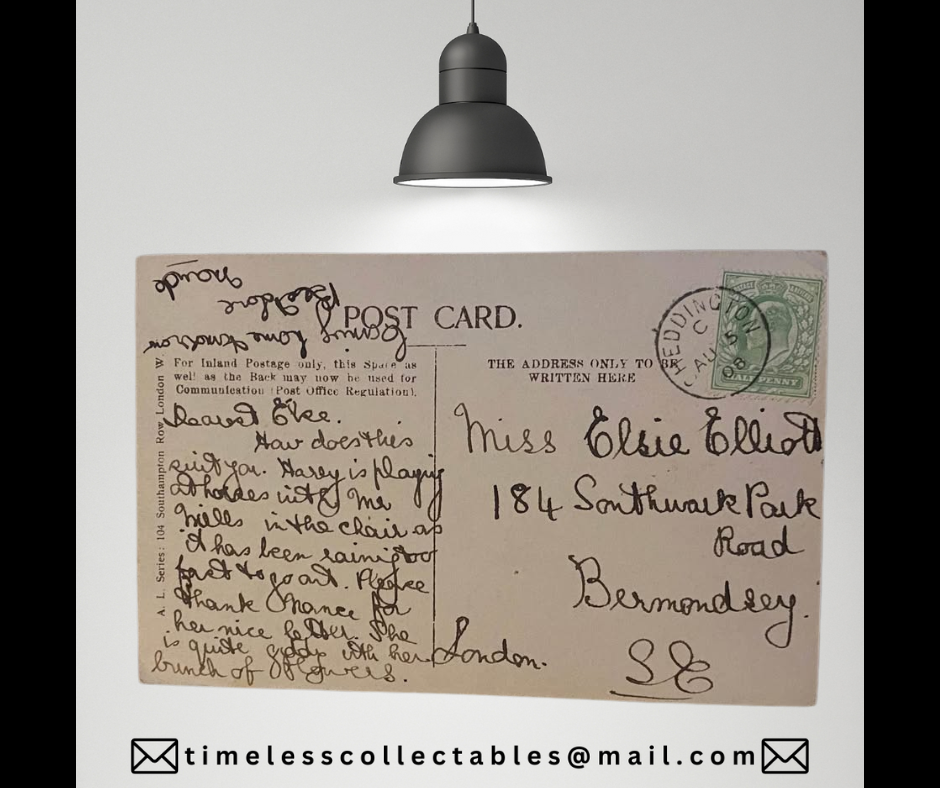 POST CARD.
For Inland Postage only, this Space as
well as the Back may now be used for
Communication (Post Office Regulation).
A. L. Series: 104 Southampton Row, London W.
Dearest
How does this
suit you. Harry is playing
at horses with Mr
Mills in the chair as
it has been raining too
fast to go out. Please
thank for
her nice letter. She
is quite with her
bunch of flowers.
home tomorrow
Best love
THE ADDRESS ONLY TO BE
WRITTEN HERE
CHEDDINGTON
C
AU 5
08
HALFPENNY
Miss Elsie Elliott
184 Southwark Park
Road
Bermondsey.
London.
SE
timelesscollectables@mail.com